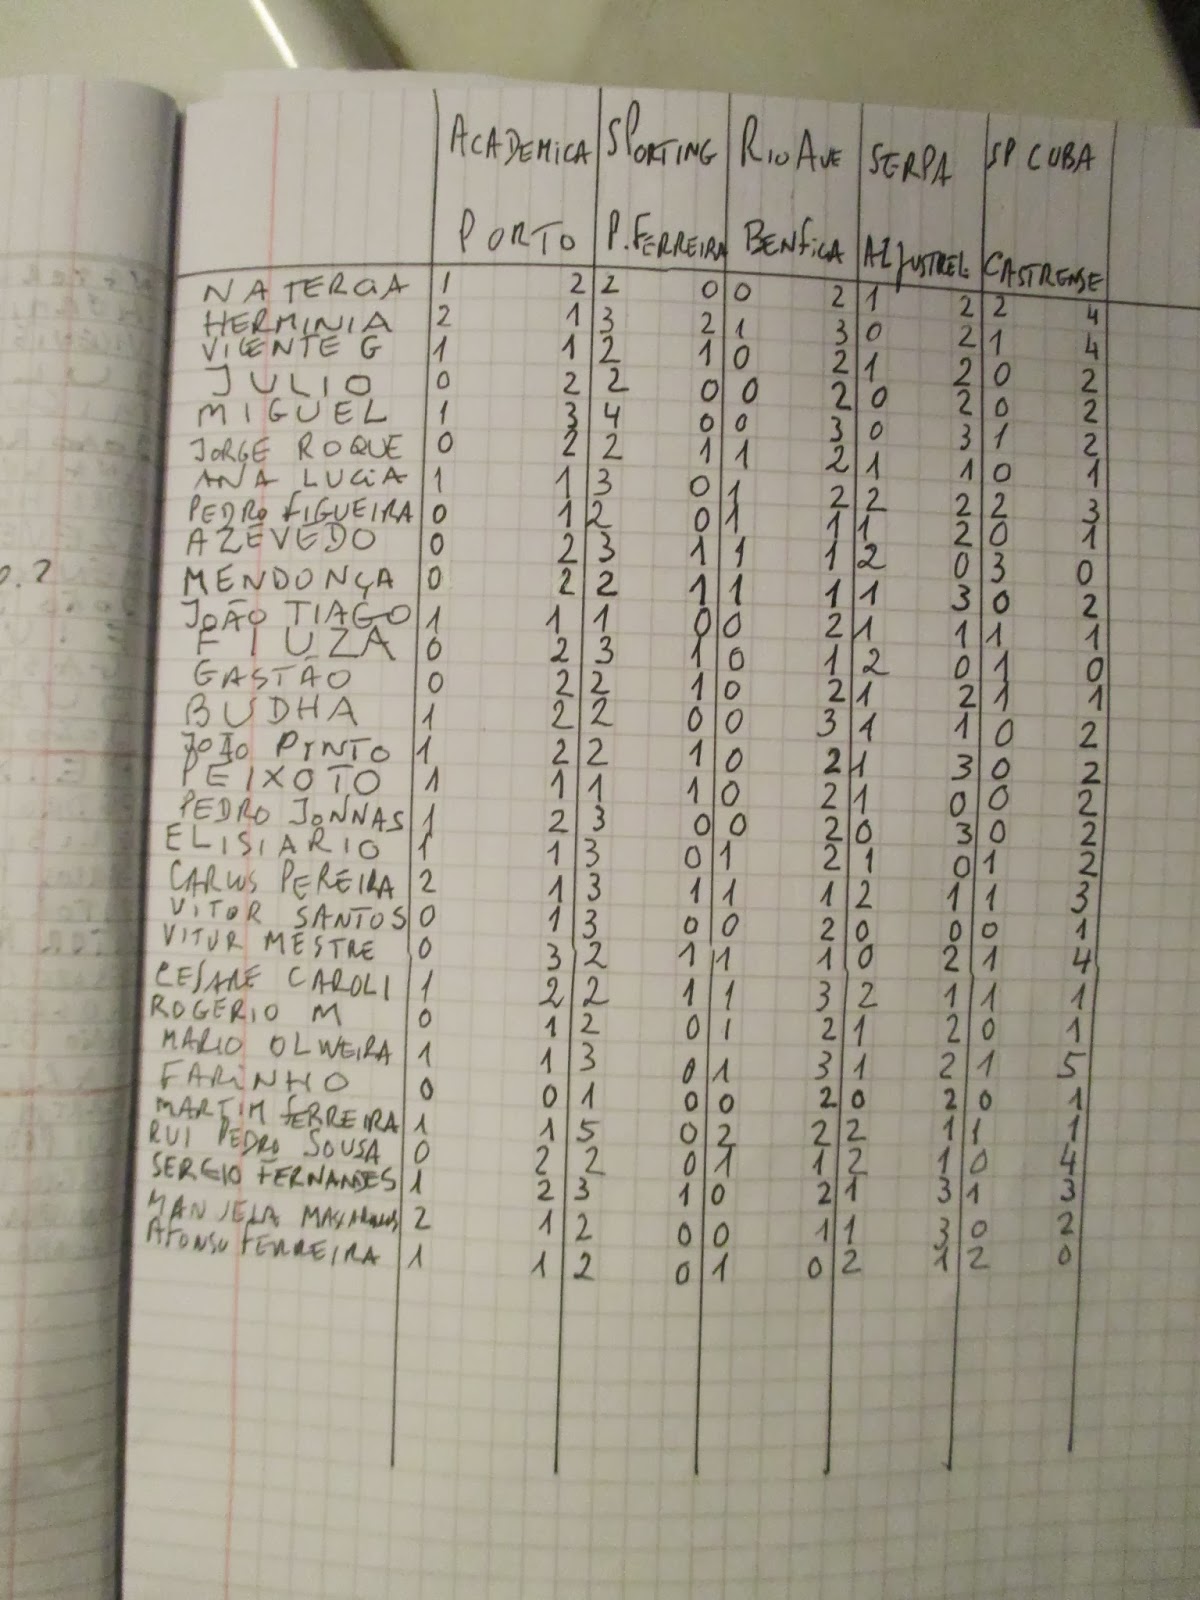 ACADEMICA SPORTING RIO AVE SERPA SP CUBA
PORTO P. FERREIRA BENFICA ALJUSTREL CASTRENSE
NATERCIA 1 2 2 0 0 2 1 2 2 4
HERMINIA 2 1 3 2 1 3 0 2 1 4
VICENTE G 1 1 2 1 0 2 1 2 0 2
JULIO 0 2 2 0 0 2 0 2 0 2
MIGUEL 1 3 4 0 0 3 0 3 1 2
JORGE ROQUE 0 2 2 1 1 2 1 1 0 1
ANA LUCIA 1 1 3 0 1 2 2 2 2 3
PEDRO FIGUEIRA 0 1 2 0 1 1 1 2 0 1
AZEVEDO 0 2 3 1 1 1 2 0 3 0
0.2
MENDONÇA 0 2 2 1 1 1 1 3 0 2
JOÃO TIAGO 1 1 1 0 0 2 1 1 1 1
FIUZA 0 2 3 1 0 1 2 0 1 0
GASTÃO 0 2 2 1 0 2 1 2 1 1
BUDHA 1 2 2 0 0 3 1 1 0 2
JOÃO PINTO 1 2 2 1 0 2 1 3 0 2
PEIXOTO 1 1 1 1 0 2 1 0 0 2
PEDRO JONNAS 1 2 3 0 0 2 0 3 0 2
ELISIARIO 1 1 3 0 1 2 1 0 1 2
CARLOS PEREIRA 2 1 3 1 1 1 2 1 1 3
VITOR SANTOS 0 1 3 0 0 2 0 0 0 1
VITUR MESTRE 0 3 2 1 1 1 0 2 1 4
CESARE CAROLI 1 2 2 1 1 3 2 1 1 1
ROGÉRIO M 0 1 2 0 1 2 1 2 0 1
MARIO OLIVEIRA 1 1 3 0 1 3 1 2 1 5
FARINHO 0 0 1 0 0 2 0 2 0 1
MARTIM FERREIRA 1 1 5 0 2 2 2 1 1 1
RUI PEDRO SOUSA 0 2 2 0 1 1 2 1 0 4
SERGIO FERNANDES 1 2 3 1 0 2 1 3 1 3
MANUELA 2 1 2 0 0 1 1 3 0 2
AFONSO FERREIRA 1 1 2 0 1 0 2 1 2 0